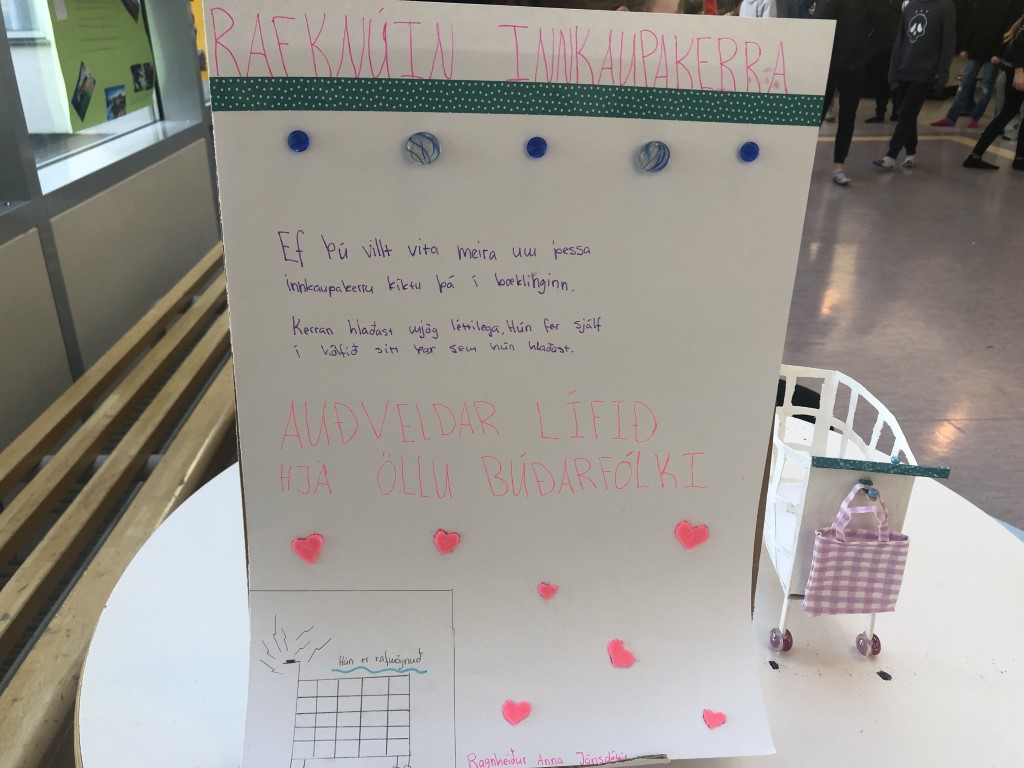 RAFKNÚIN INNKAUPAKERRA
Ef þú villt vita meira um þessa
innkaupakerru kíktu þá í bæklinginn.
Kerran hlaðast mjög léttilega, Hún fer sjálf
í sitt þar sem hún hlaðast.
AUÐVELDAR LÍFIÐ
HJA ÖLLU BÚÐARFÓLKI
Hún er rafmögnuð
Ragnheiður Anna Jónsdóttir